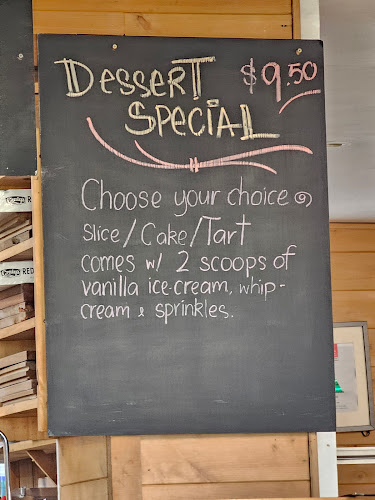 Dessert $9.50
Special
Choose your choice
Slice/Cake/Tart
comes w/ 2 scoops of
vanilla ice-cream, whip-
cream & sprinkles.
RED
RED